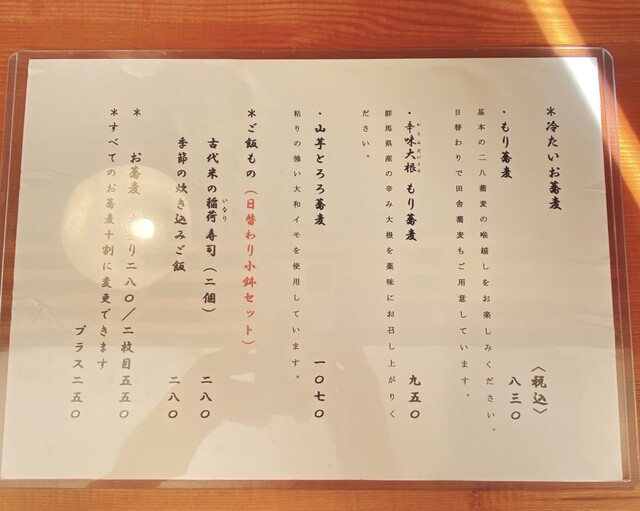 ＊冷たいお蕎麦
〈税込〉
・もり蕎麦
八三〇
基本の二八蕎麦の喉越しをお楽しみください。
日替わりで田舎蕎麦もご用意しています。
・辛味大根 もり蕎麦
からみだいこん
九五〇
群馬県産の辛み大根を薬味にお召し上がりく
ださい。
・山芋とろろ蕎麦
一〇七〇
粘りの強い大和イモを使用しています。
＊ご飯もの（日替わり小鉢セット）
古代米の稲荷寿司（二個）
いなり
二八〇
季節の炊き込みご飯
二八〇
＊お蕎麦
り二八〇／二枚目五五〇
＊すべてのお蕎麦十割に変更できます
プラス二五〇